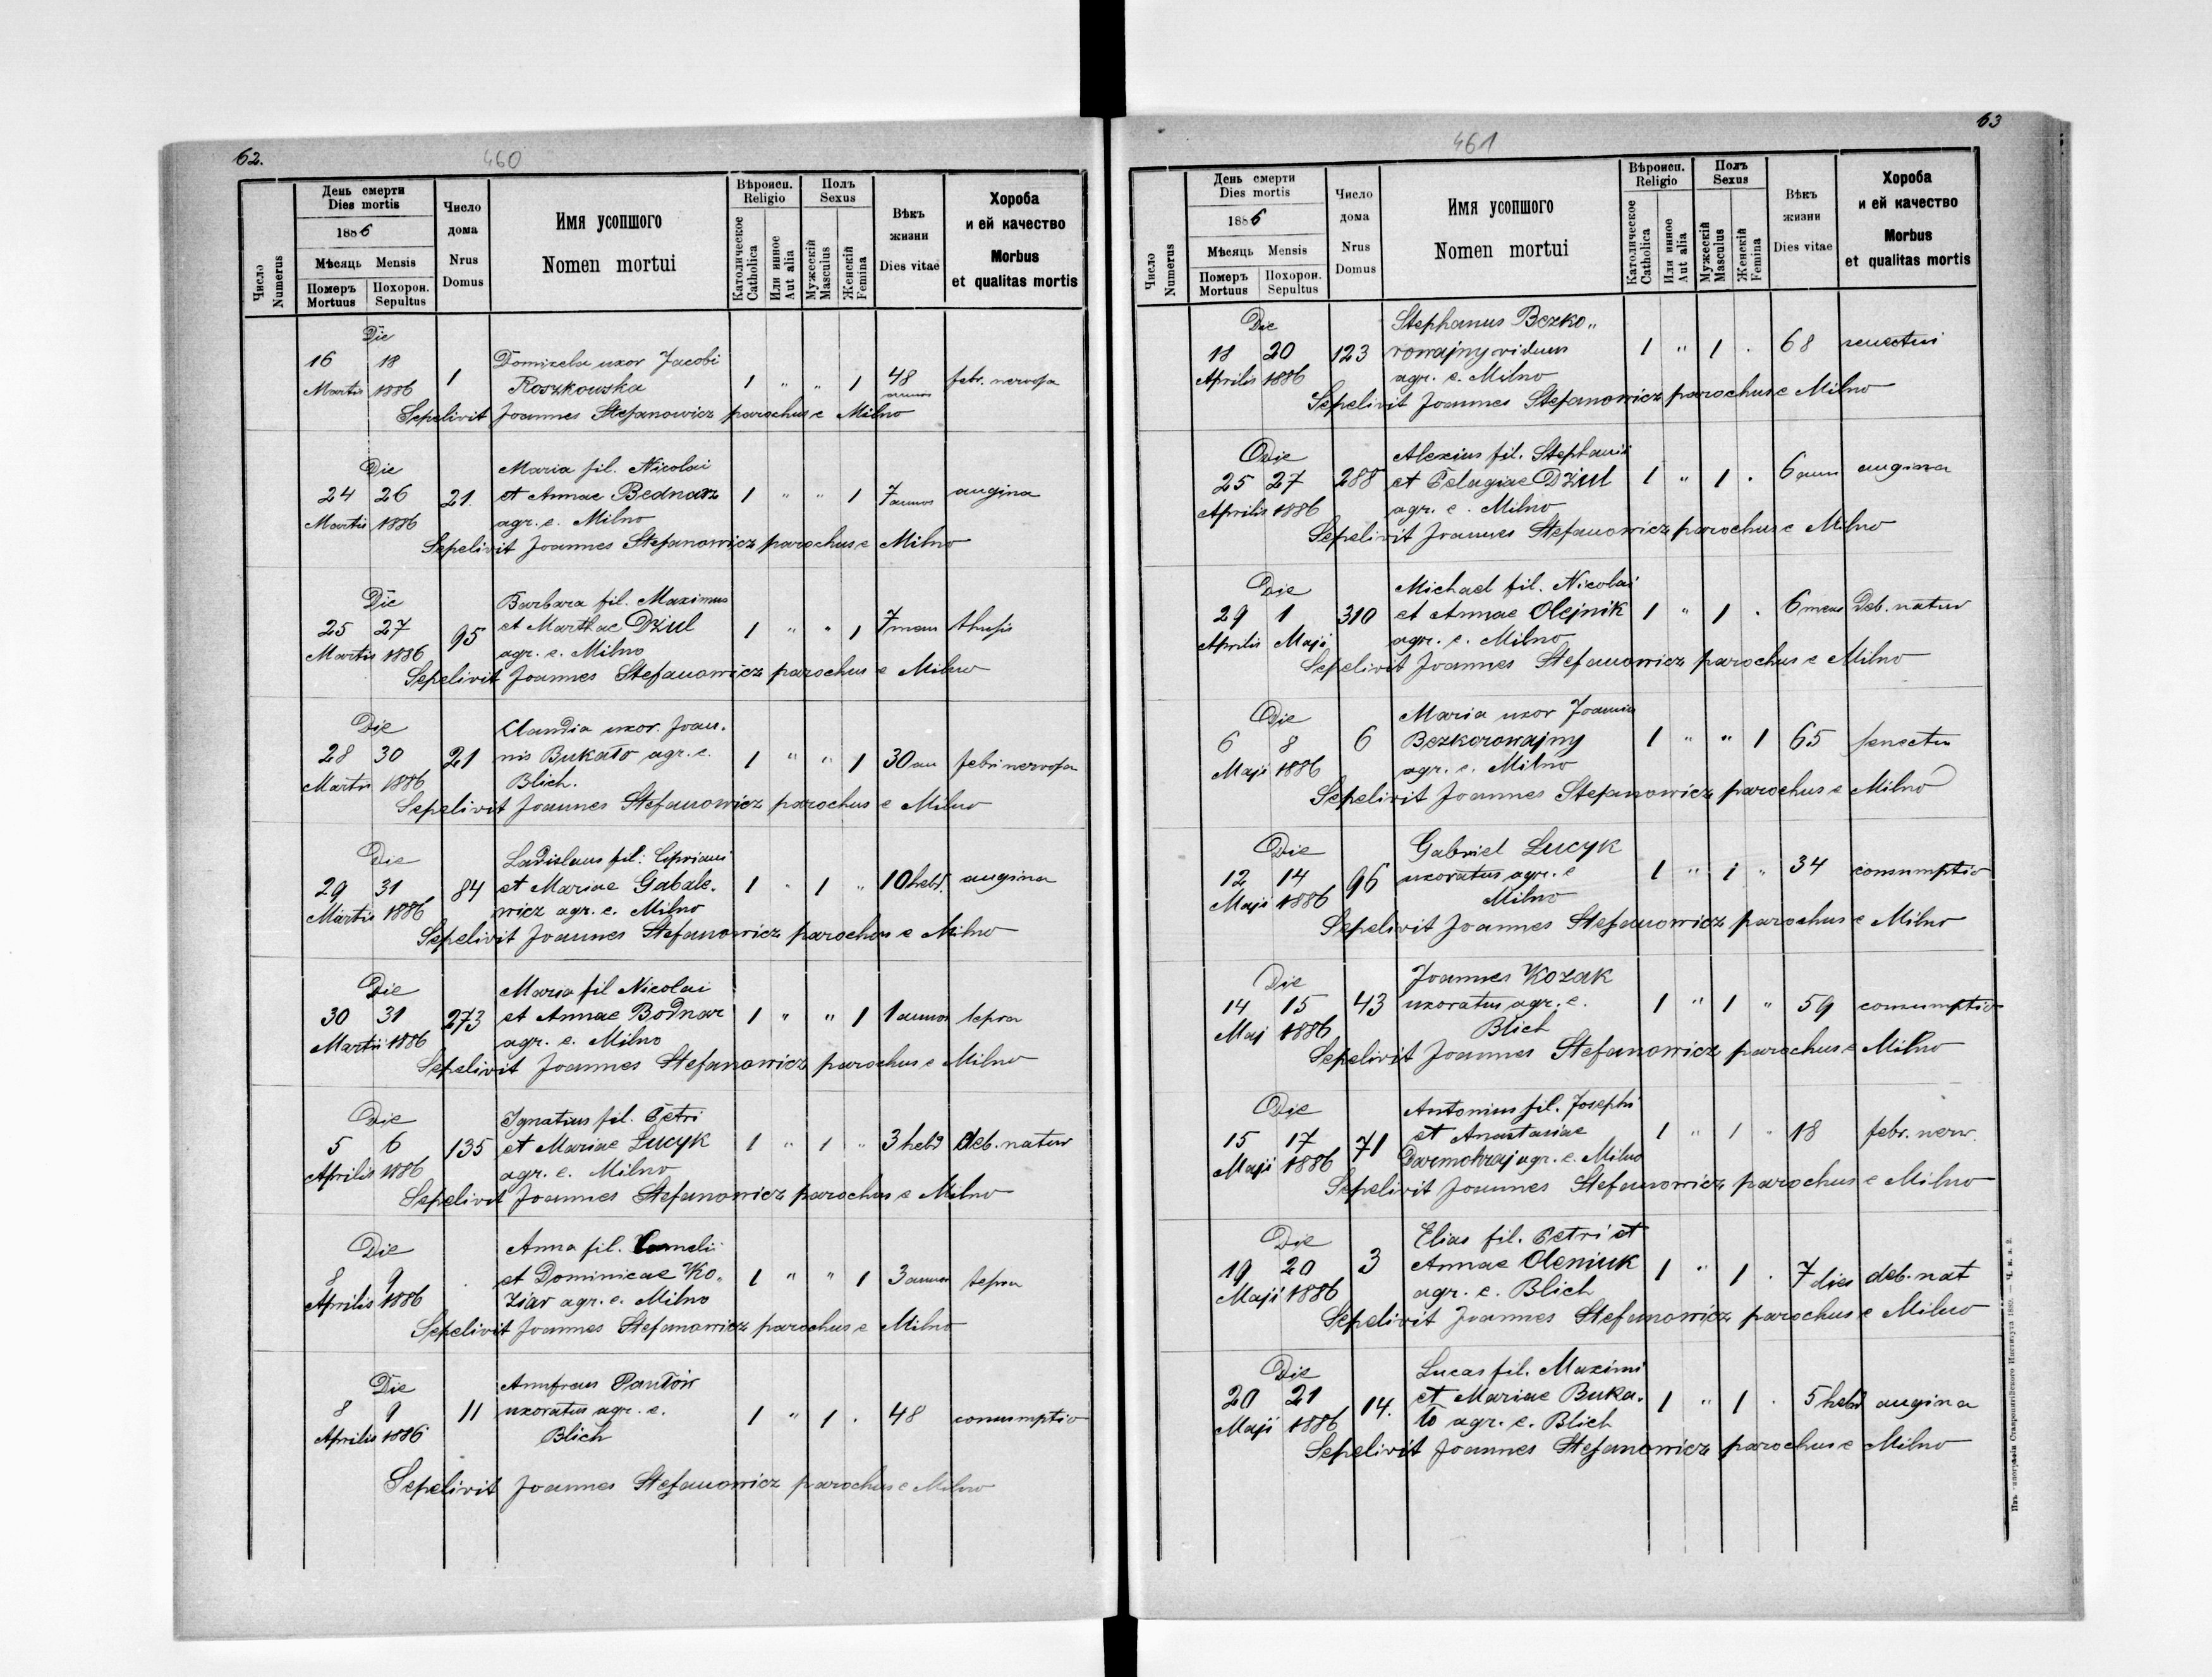 62.
460
Число
Numerus
День смерти
Dies mortis
1886
Мѣсяць Mensis
Померъ Похорон.
Mortuus Sepultus
Число
дома
Nrus
Domus
Имя усопшого
Nomen mortui
Вѣроисп.
Religio
Католическое
Catholica
Или инное
Aut alia
Полъ
Sexus
Мужескій
Masculus
Женскій
Femina
Вѣкъ
жизни
Dies vitae
Хороба
и ей качество
Morbus
et qualitas mortis
Die
16 18 Domicela uxor Jacobi
Martii 1886 1 Roszkowska 1 " " 1 48 febr. nervosa
annos
Sepelivit Joannes Stefanowicz parochus e Milno
Die Maria fil. Nicolai
24 26 21. et Annae Bednarz 1 " " 1 7 annos angina
Martii 1886 agr. e. Milno
Sepelivit Joannes Stefanowicz parochus e Milno
Die Barbara fil. Maximus
25 27 95 et Marthae Dziul 1 " " 1 7 men thusis
Martii 1886 agr. e. Milno
Sepelivit Joannes Stefanowicz parochus e Milno
Die Claudia uxor. Joan.
28 30 21 nis Bukato agr. e. 1 " " 1 30 an febri nervosa
Martii 1886 Blich.
Sepelivit Joannes Stefanowicz parochus e Milno
Die Ladislaus fil: Cipriani
29 31 84 et Mariae Gabale. 1 " 1 " 10 hebd. angina
Martii 1886 wicz agr. e. Milno
Sepelivit Joannes Stefanowicz parochus e Milno
Die Maria fil Nicolai
30 31 273 et Annae Bodnar 1 " " 1 1 annos lepra
Martii 1886 agr. e. Milno
Sepelivit Joannes Stefanowicz parochus e Milno
Die Ignatius fil. Petri
5 6 135 et Mariae Lucyk 1 " 1 " 3 hebd deb. natur
Aprilis 1886 agr. e. Milno
Sepelivit Joannes Stefanowicz parochus e Milno
Die Anna fil. Cornelii
8 9 . et Dominicae Ko„ 1 " " 1 3 annos lepra
Aprilis 1886 ziar agr. e. Milno
Sepelivit Joannes Stefanowicz parochus e Milno
Die Pantoń
8 9 11 uxoratus agr. e. 1 " 1 . 48 consumptio
Aprilis 1886 Blich
Sepelivit Joannes Stefanowicz parochus e Milno
63
461
Число
Numerus
День смерти
Dies mortis
1886
Мѣсяць Mensis
Померъ Похорон.
Mortuus Sepultus
Число
дома
Nrus
Domus
Имя усопшого
Nomen mortui
Вѣроисп.
Religio
Католическое
Catholica
Или инное
Aut alia
Полъ
Sexus
Мужескій
Masculus
Женскій
Femina
Вѣкъ
жизни
Dies vitae
Хороба
и ей качество
Morbus
et qualitas mortis
Die Stephanus Bezko„
18 20 123 rowajny viduus 1 " 1 . 68 senectus
Aprilis 1886 agr. e. Milno
Sepelivit Joannes Stefanowicz parochus e Milno
Die Alexius fil. Stephanii
25 27 288 et Pelagiae Dziul 1 " 1 . 6 ann angina
Aprilis 1886 agr. e. Milno
Sepelivit Joannes Stefanowicz parochus e Milno
Die Michael fil. Nicolai
29 1 310 et Annae Olejnik 1 " 1 . 6 mens deb. natur
Aprilis Maji agr. e. Milno
Sepelivit Joannes Stefanowicz parochus e Milno
Die Maria uxor Joannis
6 8 6 Bezkorowajny 1 " " 1 65 senectus
Maji 1886 agr. e. Milno
Sepelivit Joannes Stefanowicz parochus e Milno
Die Gabriel Lucyk
12 14 96 uxoratus agr. e 1 " 1 " 34 consumptio
Maji 1886 Milno
Sepelivit Joannes Stefanowicz parochus e Milno
Die Joannes Kozak
14 15 43 uxoratus agr. e. 1 " 1 " 59 consumptio
Maj 1886 Blich
Sepelivit Joannes Stefanowicz parochus e Milno
Die Antonius fil. Josephi
15 17 71 et Anastasiae 1 " 1 " 18 febr. nerw.
Maji 1886 Darmohraj agr. e. Milno
Sepelivit Joannes Stefanowicz parochus e Milno
Die Elias fil. Petri et
19 20 3 Annae Oleniuk 1 " 1 . 7 dies deb. nat
Maji 1886 agr. e. Blich
Sepelivit Joannes Stefanowicz parochus e Milno
Die Lucas fil. Maximi
20 21 14. et Mariae Buka. 1 " 1 . 5 hebd angina
Maji 1886 to agr. e. Blich
Sepelivit Joannes Stefanowicz parochus e Milno
Изъ типографіи Ставропигійского Института